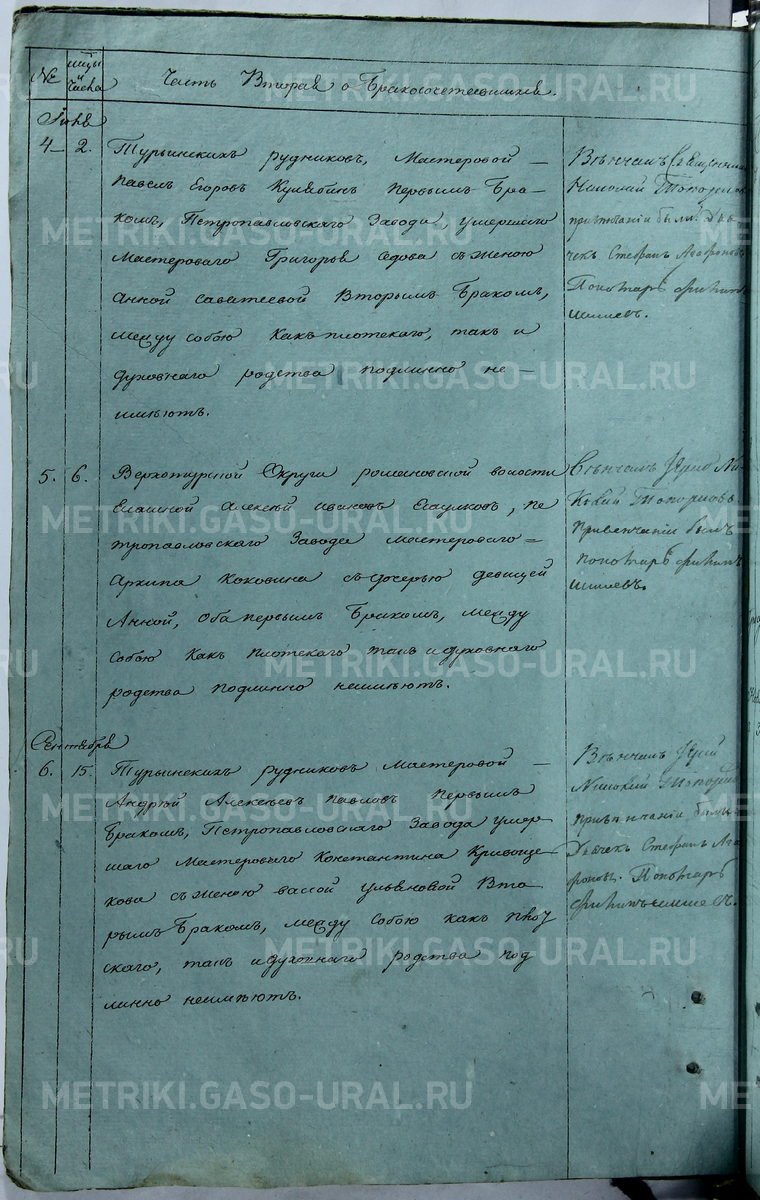 № мцы и числа Часть Вторая о Бракосочетавшихся.
Июня
4 2. Турьинскихъ рудниковъ, Мастеровой
Павелъ Егоровъ первымъ Бра-
комъ, Петропавловскаго Завода, умершаго
Мастероваго Григорья Седова съ женою
Анной Саватеевой Вторымъ Бракомъ,
между собою какъ плотскаго, такъ и
духовнаго родства подлинно не
имѣютъ.
Вѣнчалъ Священникъ
Николай Топорковъ
при вѣнчаніи были Дья-
чекъ Стефанъ Агафоновъ
Пономарь Филипъ
Шишевъ.
5. 6. Верхотурской Округи романовской волости
Алексѣй Ивановъ Есаулковъ, Пе
тропавловскаго Завода мастероваго
Архипа Коковина съ дочерью девицей
Анной, оба первымъ Бракомъ, между
собою какъ плотскаго такъ и духовнаго
родства подлинно неимѣютъ.
Вѣнчалъ Іерей Ни-
колай Топорковъ
При венчаніи былъ
пономарь Филипъ
Шишевъ.
Сентября
6. 15. Турьинскихъ рудниковъ Мастеровой
Андрей Алексѣевъ Павловъ первымъ
Бракомъ, Петропавловскаго Завода умер
шаго Мастероваго Константина Кривоще
кова съ женою Вассой Ульяновой Вто
рымъ Бракомъ, между собою какъ плоц
скаго, такъ и духовнаго родства под
линно неимѣютъ.
Вѣнчалъ Іерей
Николай Топорковъ
при вѣнчаніи были
Дьячекъ Стефанъ Ага
фоновъ. Пономарь
Филипъ Шишевъ.
METRIKI.GASO-URAL.RU